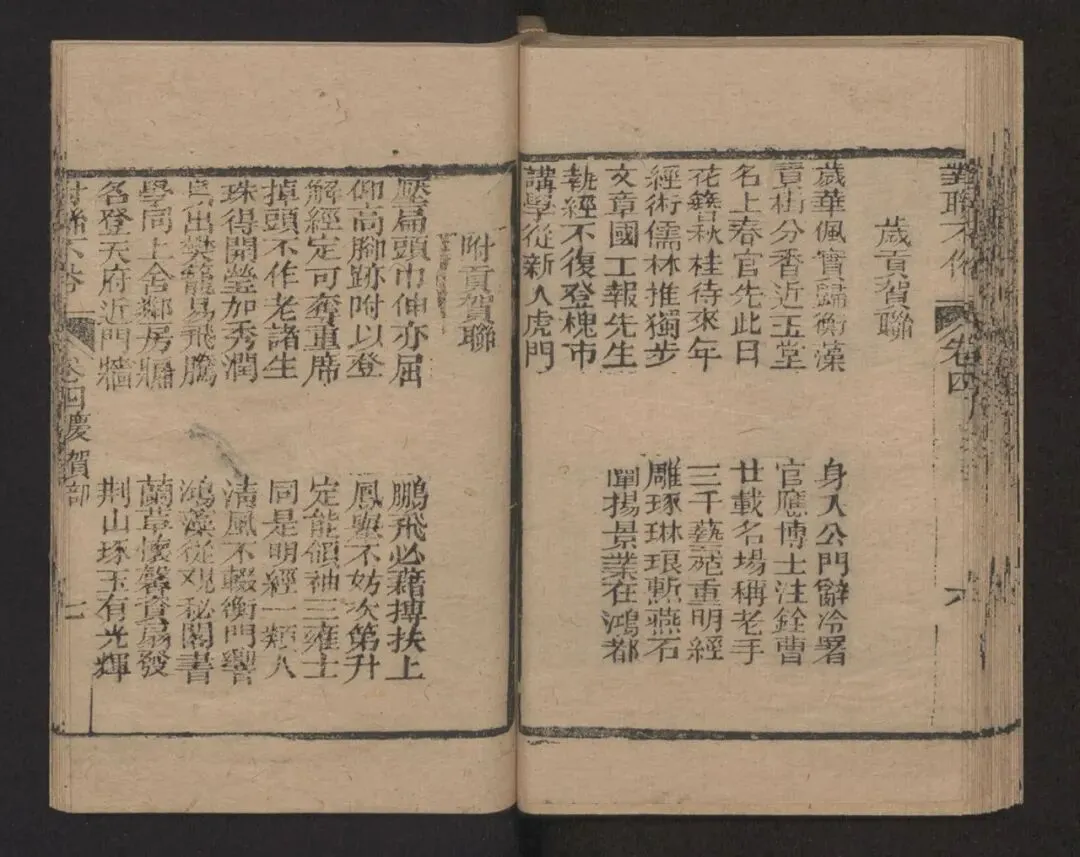 對聯不俗
卷四
六
歲貢賀聯
歲華佩實歸衡藻
貢樹分香近玉堂
名上春官先此日
花簪秋桂待來年
經術儒林推獨步
文章國工報先生
執經不復登槐市
講學從新入虎門
身入公門辭冷署
官應博士注銓曹
廿載名場稱老手
三千藝苑重明經
雕琢琳琅慙燕石
闡揚景業在鴻都
附貢賀聯
壓扁頭巾伸亦屈
仰高腳跡附以登
解經定可奪重席
掉頭不作老諸生
珠得開瑩加秀潤
鳥出樊籠易飛騰
學同上舍鄰居牖
名登天府近門牆
鵬飛必藉摶扶上
鳳舉不妨次第升
定能領袖三雍士
同是明經一類人
清風不輟衡門響
鴻藻從窺秘閣書
蘭葦懷馨資易發
荆山琢玉有光輝
對聯不俗
卷四慶賀部
七